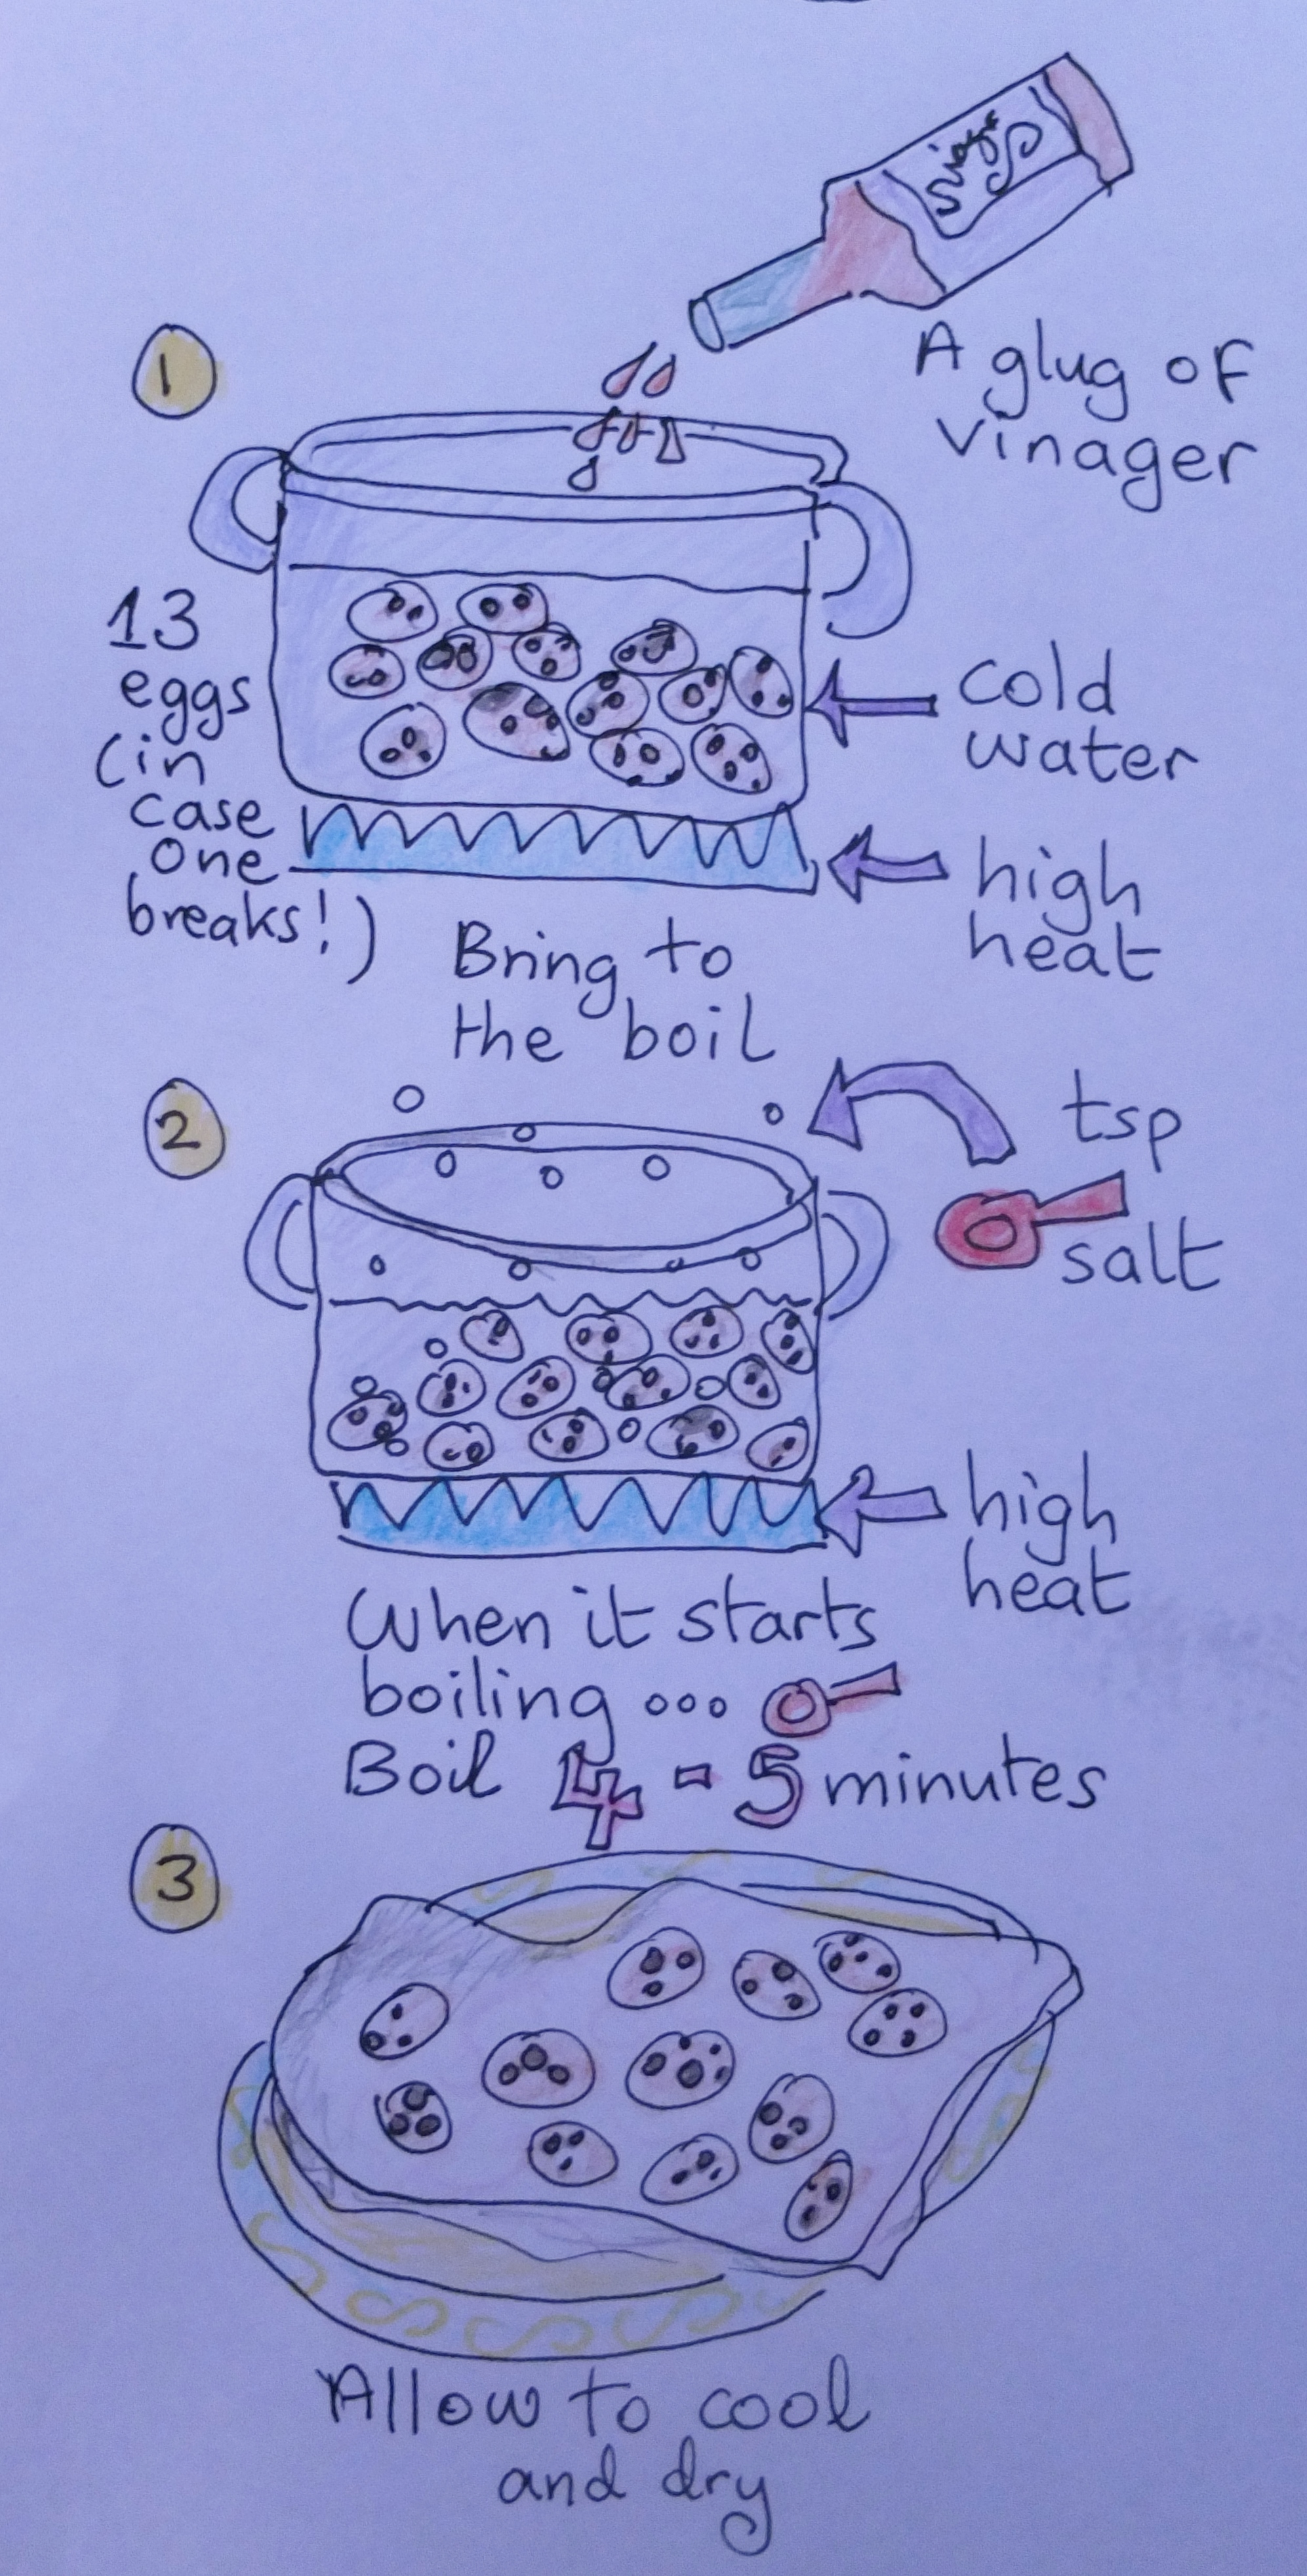 1
A glug of
vinager
13
eggs
(in
case
one
breaks!)
cold
water
high
heat
Bring to
the boil
2
tsp
salt
high
heat
When it starts
boiling ...
Boil 4 - 5 minutes
3
Allow to cool
and dry